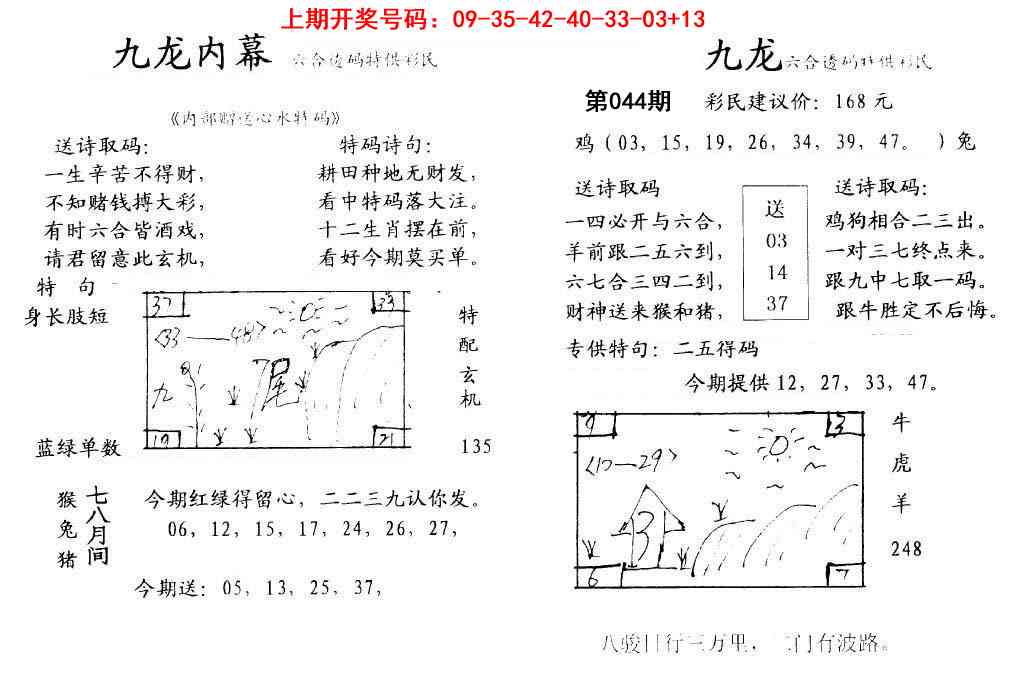 上期开奖号码：09-35-42-40-33-03+13
九龙内幕 六合透码特供彩民
《内部赠送心水特码》
送诗取码：
一生辛苦不得财，
不知赌钱搏大彩，
有时六合皆酒戏，
请君留意此玄机，
特码诗句：
耕田种地无财发，
看中特码落大注。
十二生肖摆在前，
看好今期莫买单。
特 句
身长肢短
蓝绿单数
37
33
<33——48>
九
尾
19
21
特
配
玄
机
135
猴
兔
猪
七八月间
今期红绿得留心，二二三九认你发。
06，12，15，17，24，26，27，
今期送：05，13，25，37，
九龙 六合透码特供彩民
第044期 彩民建议价：168元
鸡（03，15，19，26，34，39，47。 ）兔
送诗取码
一四必开与六合，
羊前跟二五六到，
六七合三四二到，
财神送来猴和猪，
送
03
14
37
送诗取码：
鸡狗相合二三出。
一对三七终点来。
跟九中七取一码。
跟牛胜定不后悔。
专供特句：二五得码
今期提供12，27，33，47。
9
13
3
6
7
牛
虎
羊
248
八骏日行三万里，二门有波路。